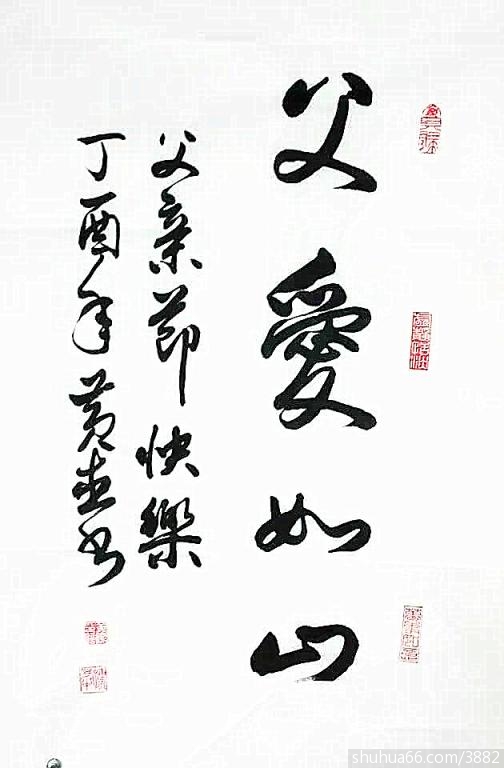 父愛如山
父亲節快樂
丁酉年黄
書
shuhua66.com/3882